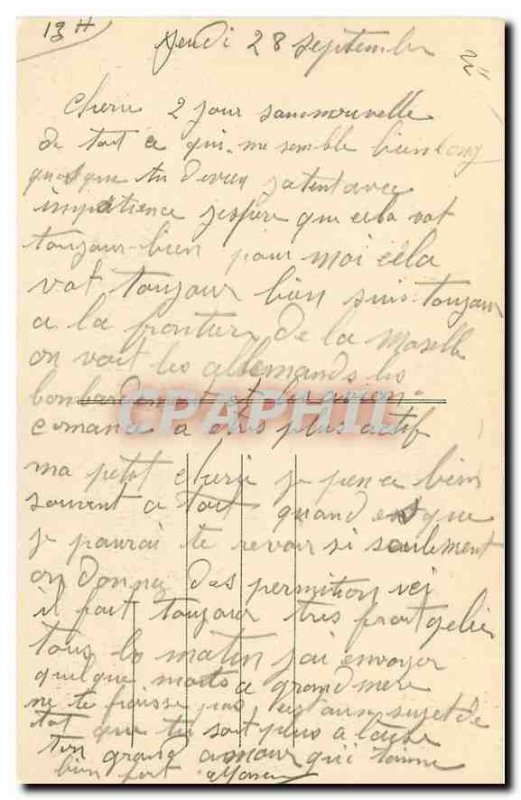 13 H
Jeudi 28 septembre
cherie 2 jour sans nouvelle
de toit ce qui me semble bien long
quoique tu devez jatent avec
impatience jespere que cela vat
toujour bien pour moi cela
vat toujour bien suis toujour
a la frontier de la Moselle
on voit les allemands les
bombardement et les avion
comance a etre plus actif
CPAPHIL
ma petit cherie je pence bien
souvent a toit quand es que
je pourai te revoir si seulement
on donnez das permition ici
il fait toujour tres froit gelie
tous les matin j'ai envoyer
quelque mots a grand mere
ne te froisse pas est au sujet de
toit que tu soit plus a laise
ton grand amour qui t'aime
bien fort